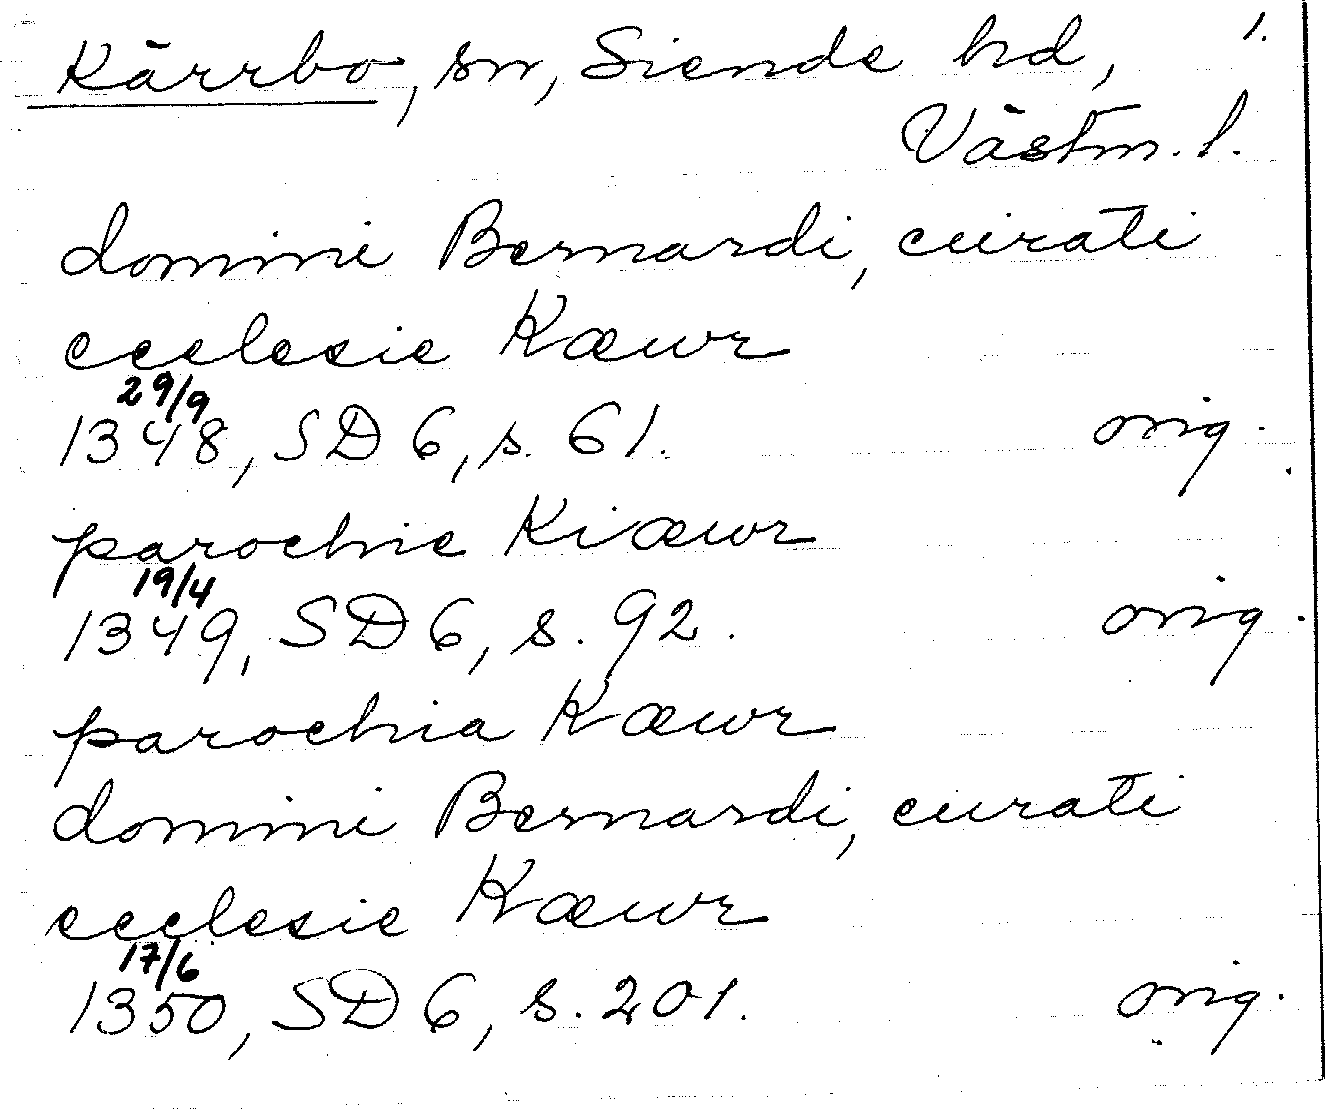 Kärrbo, sn, Siende hd, 1.
Västm. l.
domini Bernardi, curati
ecclesie Kæwr
29/9
1348, SD 6, s. 61. orig.
parochie Kiæwr
19/4
1349, SD 6, s. 92. orig.
parochia Kæwr
domini Bernardi, curati
ecclesie Kæwr
17/6
1350, SD 6, s. 201. orig.